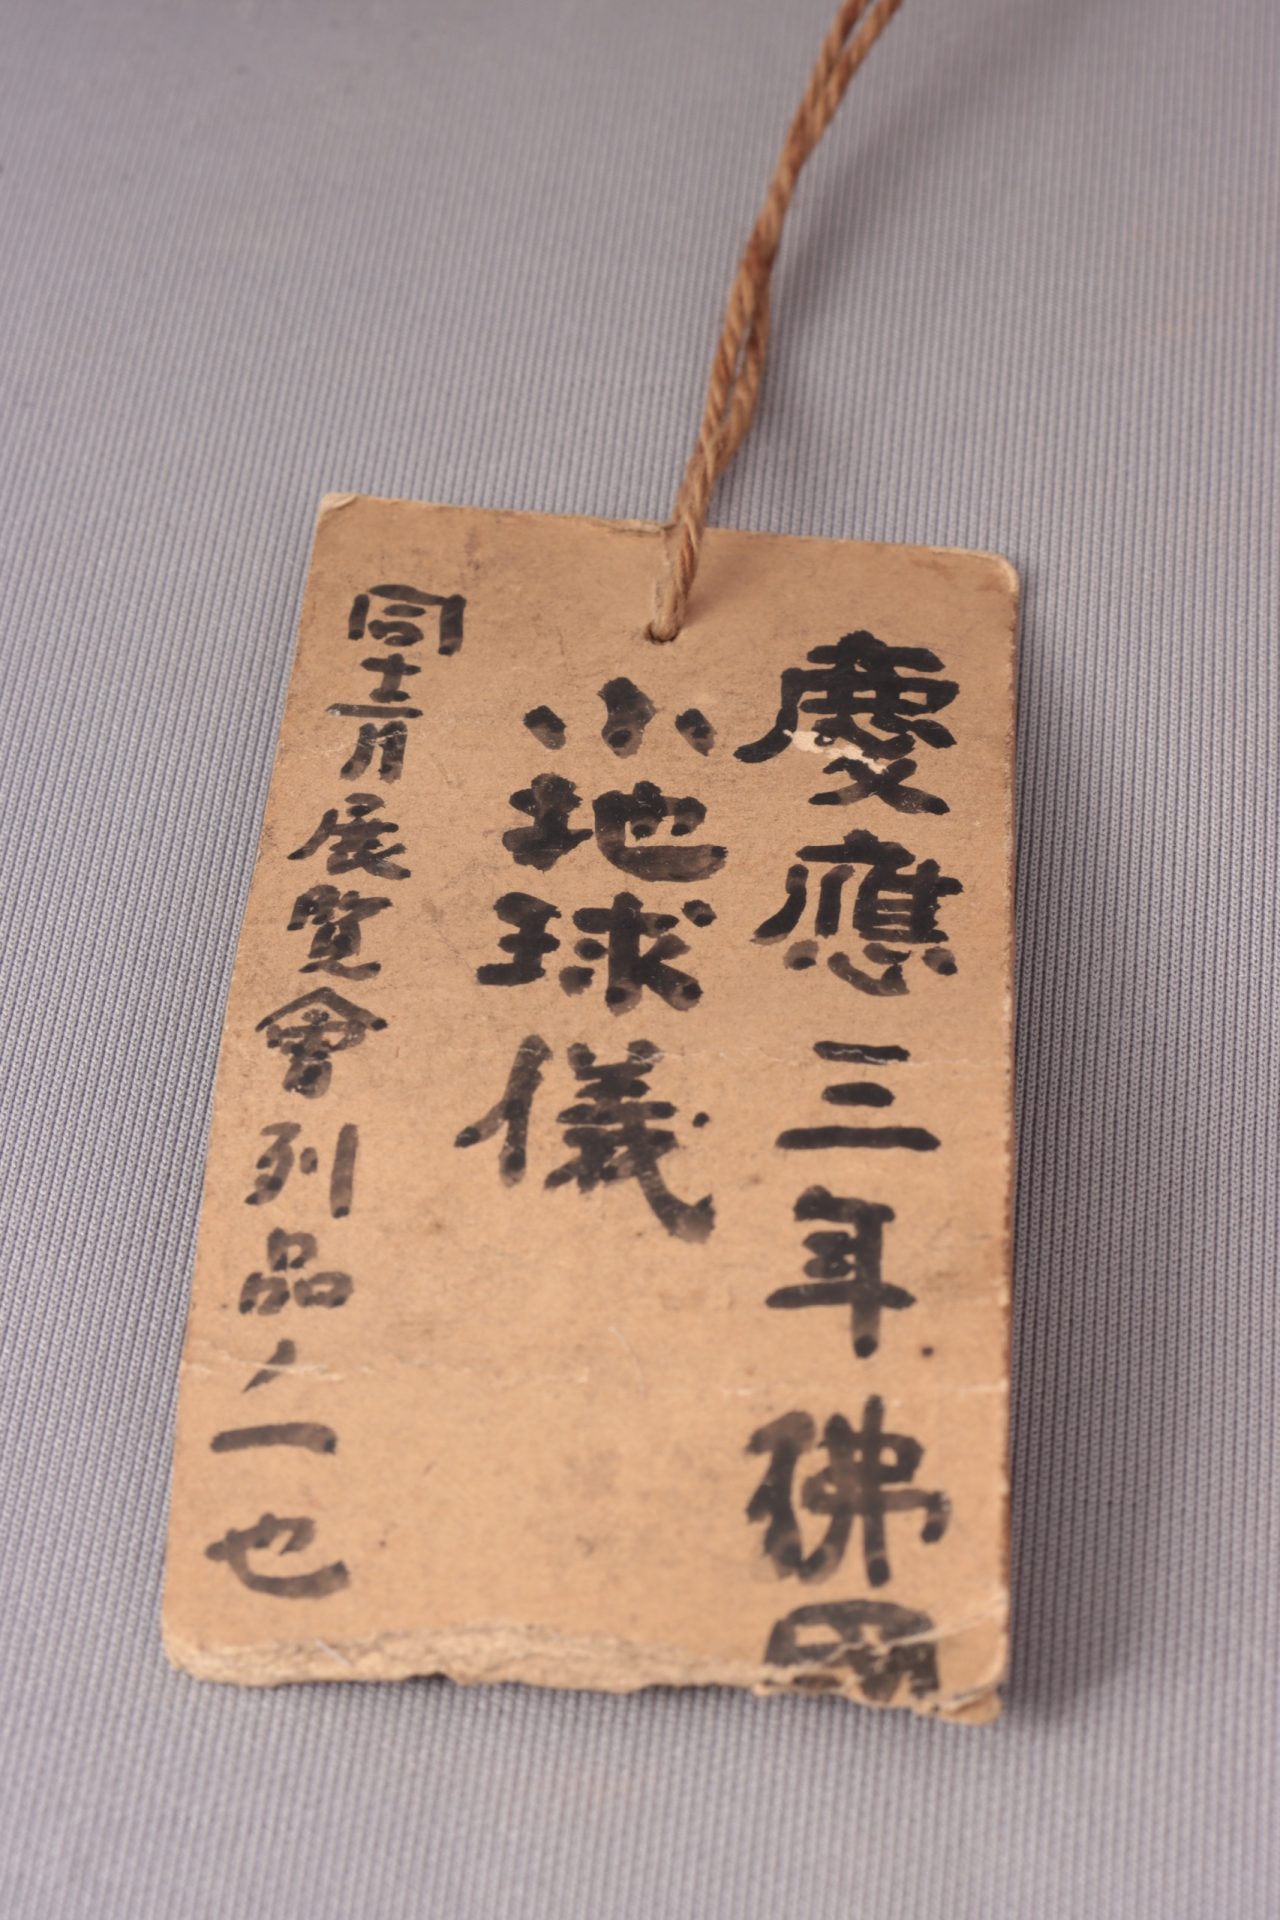 慶應三年佛國
小地球儀
同十二月展覧會列品ノ一也